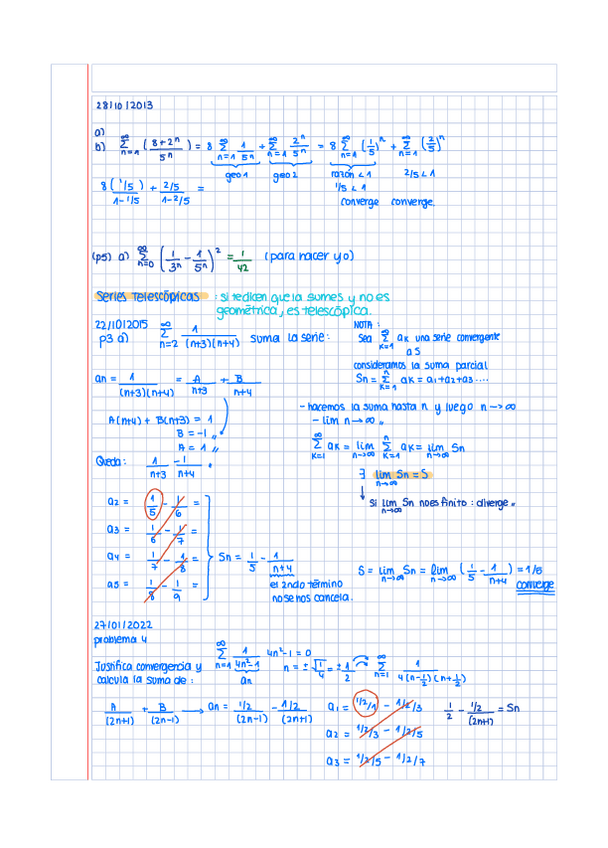 28/10/2013
a)
b) ∞Σn=1 (8+2ⁿ / 5ⁿ) = 8 ∞Σn=1 1/5ⁿ + ∞Σn=1 2ⁿ/5ⁿ = 8 ∞Σn=1 (1/5)ⁿ + ∞Σn=1 (2/5)ⁿ
geo1 geo2 razón < 1 2/5 < 1
8 (1/5)/(1-1/5) + (2/5)/(1-2/5) = 1/5 < 1
converge converge.
(p5) a) ∞Σn=0 (1/3ⁿ - 1/5ⁿ)² = 1/42 (para hacer yo)
Series Telescópicas : si te dicen que la sumes y no es
geométrica, es telescópica.
22/10/2015 ∞Σn=2 1/((n+3)(n+4)) suma la serie:
p3 a)
NOTA:
Sea ∞Σk=1 ak una serie convergente
a S
consideramos la suma parcial
Sn = nΣk=1 ak = a1+a2+a3....
an = 1/((n+3)(n+4)) = A/(n+3) + B/(n+4)
A(n+4) + B(n+3) = 1
B = -1 //
A = 1 //
- hacemos la suma hasta n y luego n→∞
- lim n→∞ //
∞Σk=1 ak = lim n→∞ nΣk=1 ak = lim n→∞ Sn
Queda: 1/(n+3) - 1/(n+4)
∃ lim n→∞ Sn = S
↓ Si lim n→∞ Sn no es finito: diverge.
a2 = 1/5 - 1/6 =
a3 = 1/6 - 1/7 =
a4 = 1/7 - 1/8 =
a5 = 1/8 - 1/9 =
Sn = 1/5 - 1/(n+4)
el 2ndo término
no se nos cancela.
S = lim n→∞ Sn = lim n→∞ (1/5 - 1/(n+4)) = 1/5
converge
27/01/2022
problema 4
Justifica convergencia y
calcula la suma de:
∞Σn=1 1/(4n²-1) 4n²-1=0
an
n = ±√(1/4) = ±1/2 ∞Σn=1 1/(4(n-1/2)(n+1/2))
A/(2n+1) + B/(2n-1) → an = (1/2)/(2n-1) - (1/2)/(2n+1)
a1 = 1/2/1 - 1/2/3
a2 = 1/2/3 - 1/2/5
a3 = 1/2/5 - 1/2/7
1/2 - (1/2)/(2n+1) = Sn